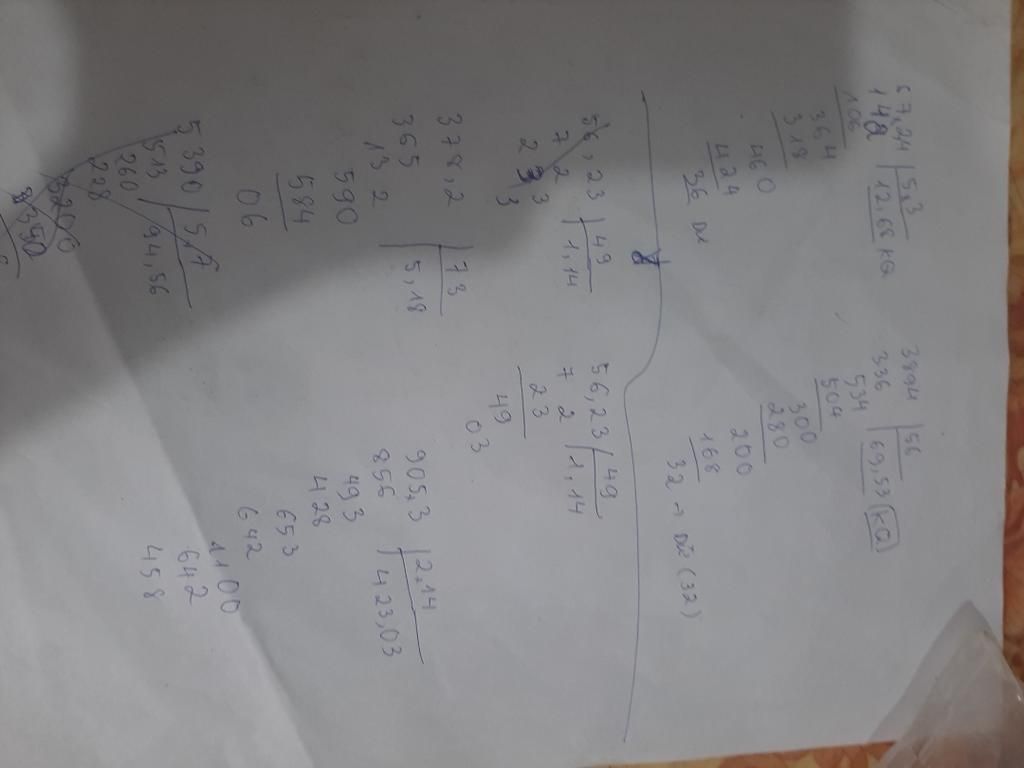 67,24 | 5,3
148 | 12,68 KQ
106
364
318
460
424
36 DC
3894 | 56
336 | 69,53 KQ
534
504
300
280
200
168
32 → số (32)
56,23 | 49
7 2 | 1,14
2 3 3
3
56,23 | 49
7 2 | 1,14
23
49
03
378,2 | 73
365 | 5,18
13 2
590
584
06
905,3 | 2,14
856 | 423,03
493
428
653
642
1100
642
458
5390 | 57
513 | 94,56
260
228